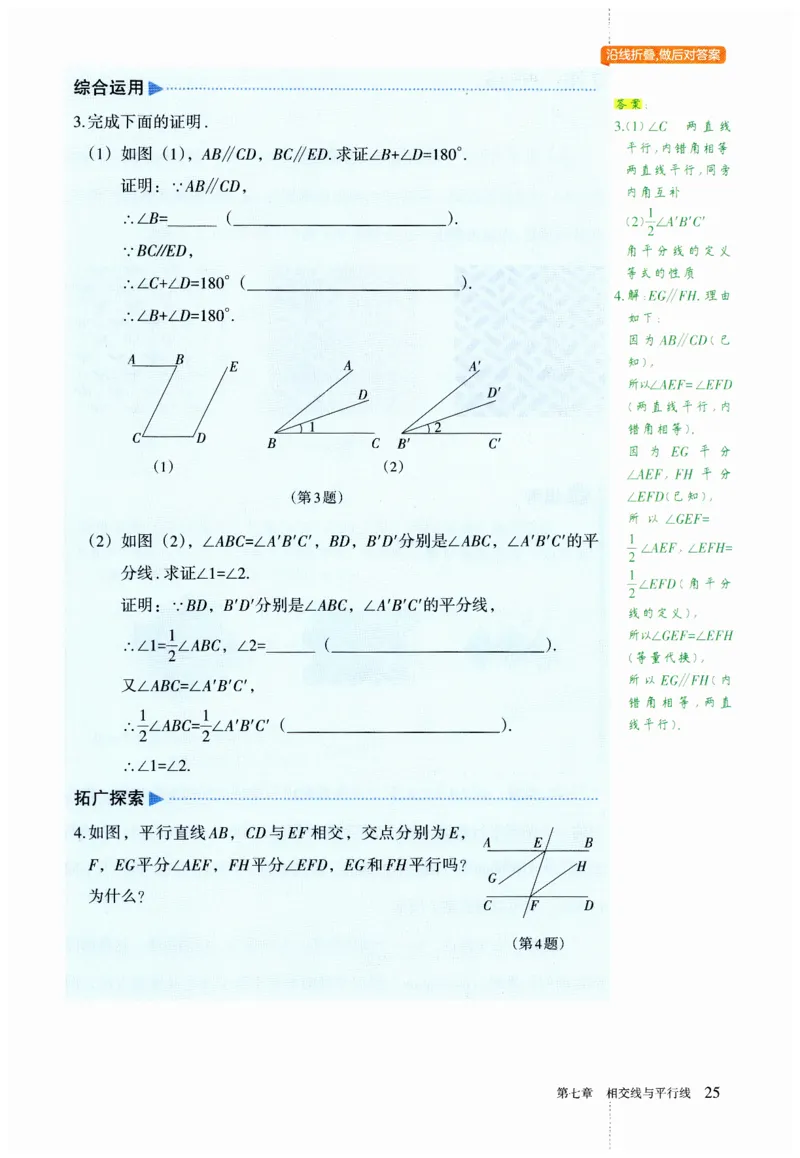 沿线折叠,做后对答案
综合运用
3.完成下面的证明.
(1) 如图(1),AB∥CD,BC∥ED.求证∠B+∠D=180°.
证明:∵AB∥CD,
∴∠B=______(______________________).
∵BC//ED,
∴∠C+∠D=180°(______________________).
∴∠B+∠D=180°.
A B E
C D
(1)
A
D
1
B C
A′
D′
2
B′ C′
(2)
(第3题)
(2) 如图(2),∠ABC=∠A′B′C′,BD,B′D′分别是∠ABC,∠A′B′C′的平
分线.求证∠1=∠2.
证明:∵BD,B′D′分别是∠ABC,∠A′B′C′的平分线,
∴∠1=1/2∠ABC,∠2=______(______________________).
又∠ABC=∠A′B′C′,
∴1/2∠ABC=1/2∠A′B′C′(______________________).
∴∠1=∠2.
拓广探索
4.如图,平行直线AB,CD与EF相交,交点分别为E,
F,EG平分∠AEF,FH平分∠EFD,EG和FH平行吗?
为什么?
A E B
G H
C F D
(第4题)
答案:
3.(1)∠C 两直线
平行,内错角相等
两直线平行,同旁
内角互补
(2)1/2∠A′B′C′
角平分线的定义
等式的性质
4.解:EG∥FH.理由
如下:
因为AB∥CD(已
知),
所以∠AEF=∠EFD
(两直线平行,内
错角相等).
因为 EG 平分
∠AEF,FH 平分
∠EFD(已知),
所以∠GEF=
1/2∠AEF,∠EFH=
1/2∠EFD(角平分
线的定义),
所以∠GEF=∠EFH
(等量代换),
所以EG∥FH(内
错角相等,两直
线平行).
第七章 相交线与平行线 25